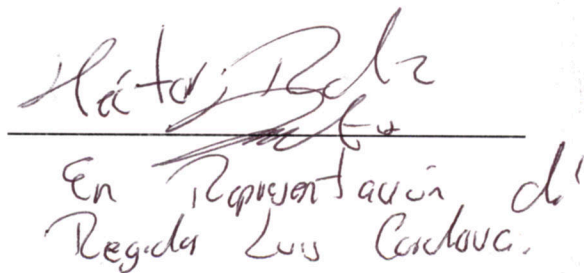 Héctor
En Representación d'
Regidor Luis Cordova.